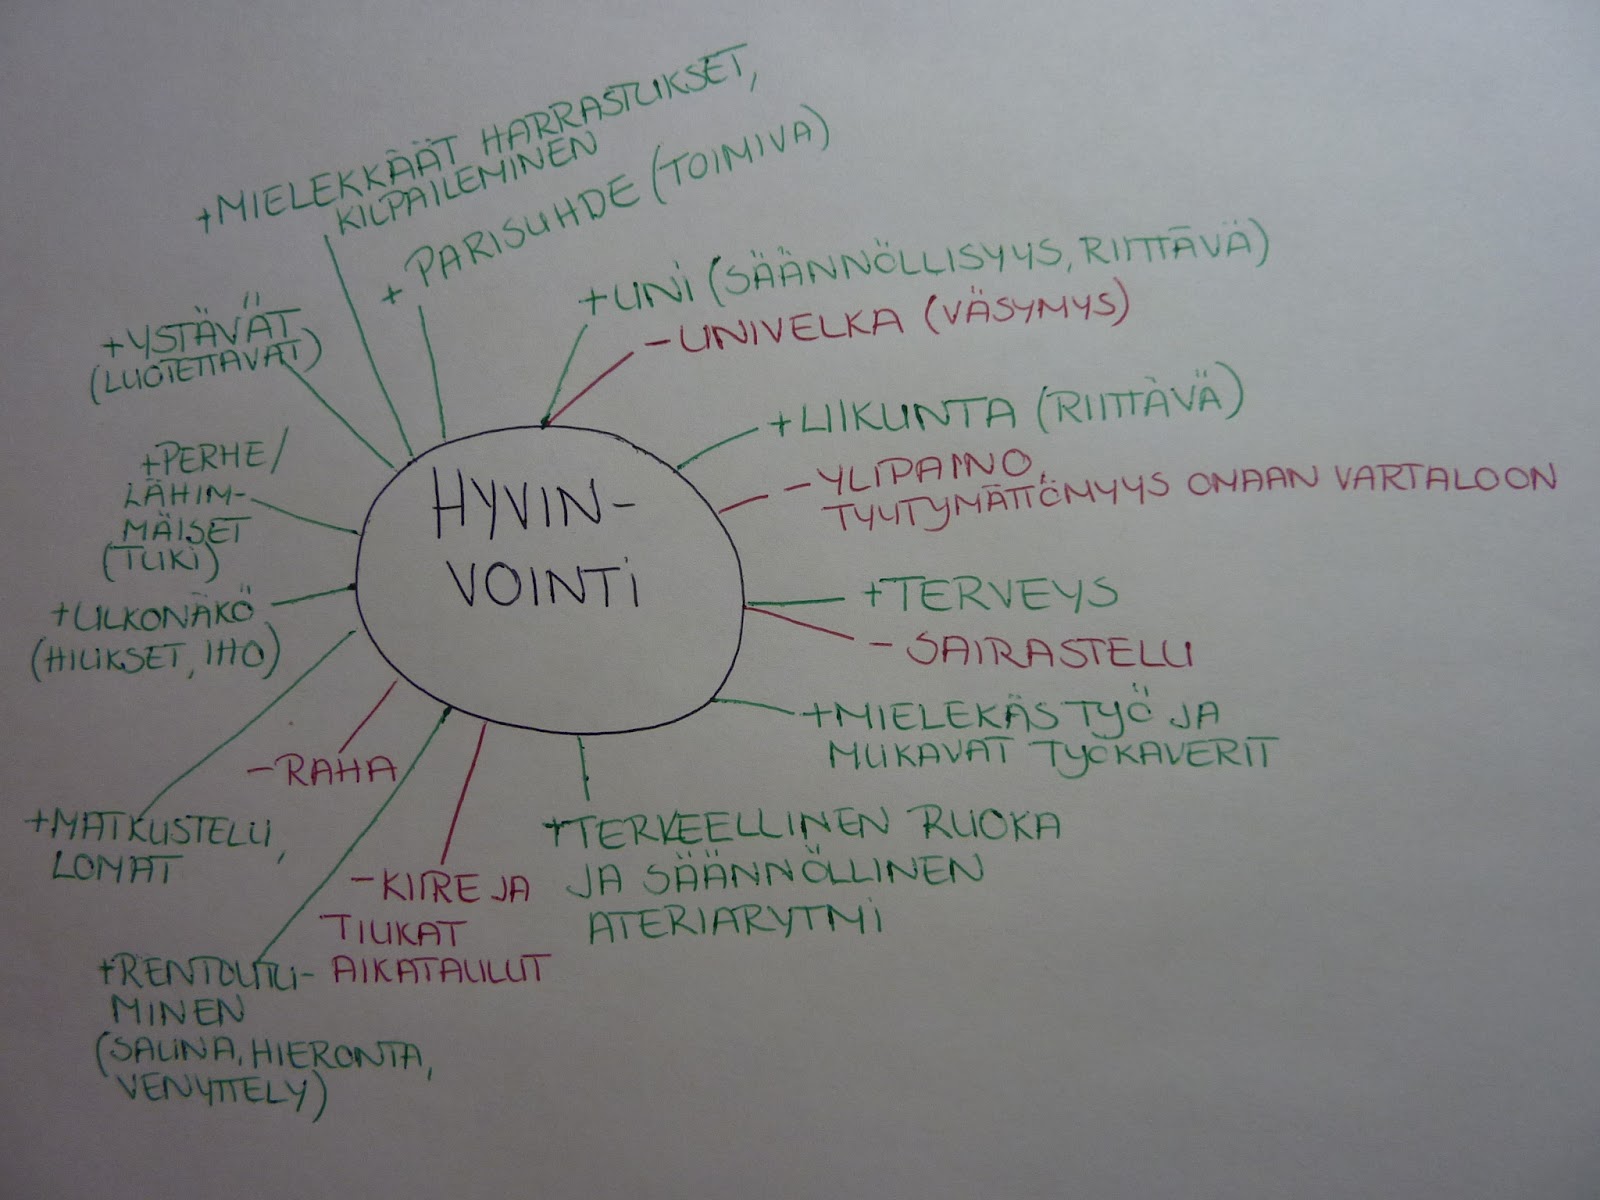 +MIELEKKÄÄT HARRASTUKSET,
KILPAILEMINEN
+ PARISUHDE (TOIMIVA)
+UNI (SÄÄNNÖLLISYYS, RIITTÄVÄ)
-UNIVELKA (VÄSYMYS)
+YSTÄVÄT
(LUOTETTAVAT)
+LIIKUNTA (RIITTÄVÄ)
-YLIPAINO,
TYYTYMÄTTÖMYYS OMAAN VARTALOON
+PERHE/
LÄHIM-
MÄISET
(TUKI)
HYVIN-
VOINTI
+TERVEYS
- SAIRASTELU
+ULKONÄKÖ
(HIUKSET, IHO)
+MIELEKÄS TYÖ JA
MUKAVAT TYÖKAVERIT
-RAHA
+MATKUSTELU,
LOMAT
+TERVEELLINEN RUOKA
JA SÄÄNNÖLLINEN
ATERIARYTMI
-KIIRE JA
TIUKAT
AIKATAULUT
+RENTOUTU-
MINEN
(SAUNA, HIERONTA,
VENYTTELY)